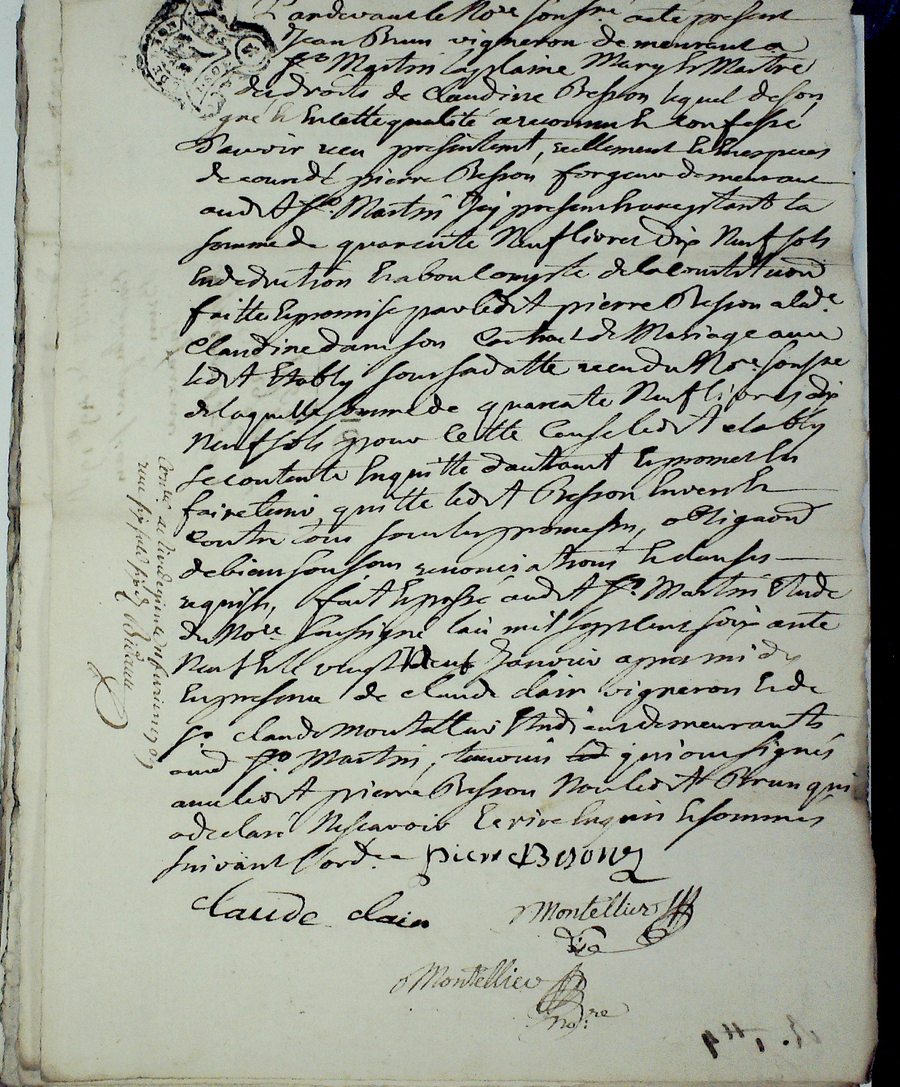 Pardevant le No.re soussné acte présent
Jean Brun vigneron demeurant a
St Martin laplaine Mary & Maitre
des droits de Claudine Besson lequel deson
gré & En cette qualité a reconnu & confessé
Davoir receu presentemt, reellement & En especes
de cours de pierre Besson forgeur demeurant
audit St. Martin Icy present & acceptant la
somme de quarente Neuf livres dix Neuf sols
En deduction & a bon Compte de la constitution
faitte & promise par ledit pierre Besson a lade.
Claudine dans son Contract de Mariage avec
ledit Etably sous sa datte receu du No.re soussné
de laquelle somme de quarente Neuf livres dix
Neuf sols pour Cette Cause ledit etably
se contente En quitte d'autant & promet En
faire tenir quitte ledit Besson Envers &
contre tous sous les promesses, obligaon
de biens soumissions renonciations & clauses
requises, fait & passé audit St. Martin Etude
du No.re soussigné l'an mil sept cent soixante
Neuf & le vingt Neuf Janvier apres midy
En presence de claude clair vigneron & de
Sr. claude Montellier Etudiant demeurants
aud St. Martin, temoins qui ont signés
avec ledit pierre Besson Non ledit Brun qui
a declaré Ne scavoir Ecrire Enquis & sommés
suivant l'ord.ce pierre Beson
claude clair Montellier
Montellier
no.re
Contr. a